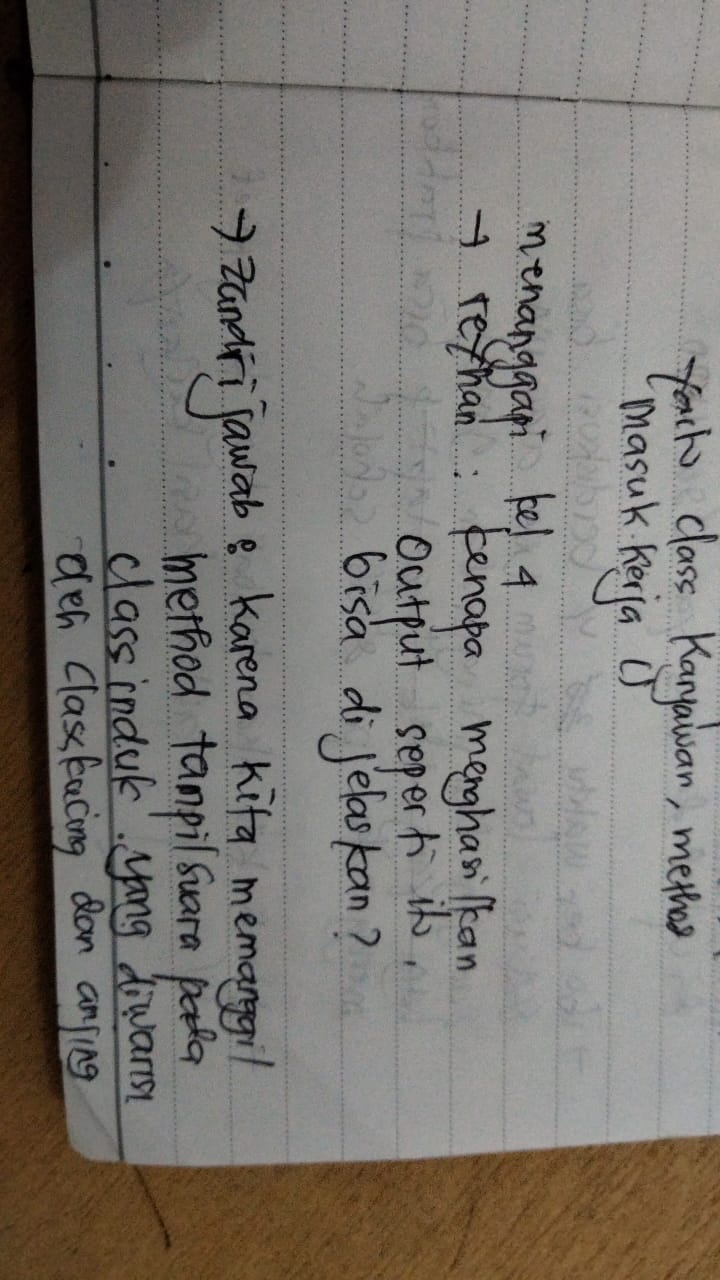 yaitu class Karyawan, method
masuk kerja ()
menanggapi kel 4
→ reyhan : kenapa menghasilkan
output seperti itu.
bisa di jelaskan?
→ Zandri jawab : karena kita memanggil
method tampilSuara pada
class induk . yang diwarisi
oleh Class kucing dan anjing